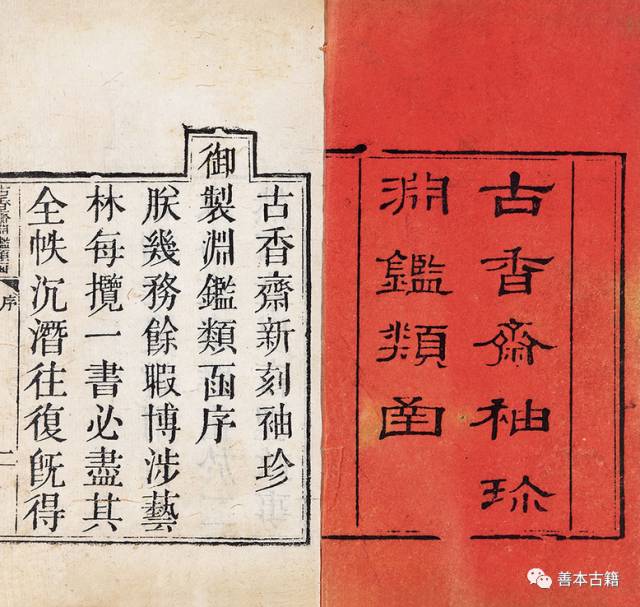 古香齋袖珎
淵鑑類凾
古香齋新刻袖珍
御製淵鑑類凾序
朕幾務餘暇博涉藝
林每攬一書必盡其
全帙沉潛往復旣得
序
善本古籍